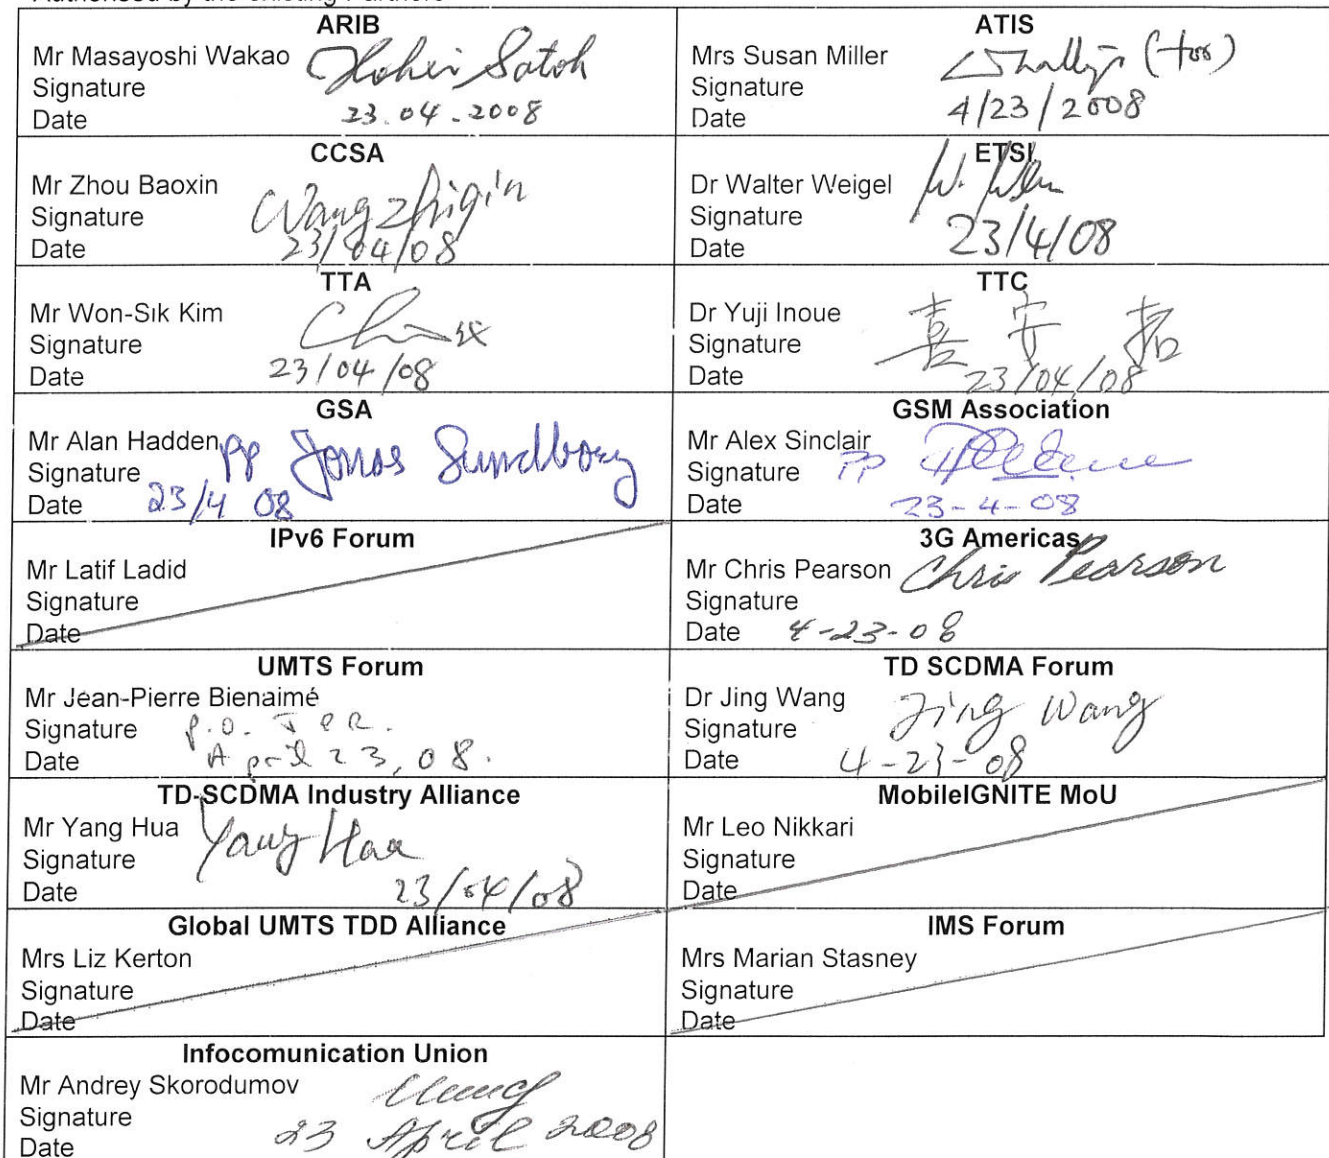 Authorised by the existing Partners
ARIB
Mr Masayoshi Wakao
Signature Kohei Satoh
Date 23.04.2008
ATIS
Mrs Susan Miller
Signature (for)
Date 4/23/2008
CCSA
Mr Zhou Baoxin
Signature Wang Zhiqin
Date 23/04/08
ETSI
Dr Walter Weigel
Signature
Date 23/4/08
TTA
Mr Won-Sik Kim
Signature
Date 23/04/08
TTC
Dr Yuji Inoue
Signature 喜安 拓
Date 23/04/08
GSA
Mr Alan Hadden
Signature pp Jonas Sundborg
Date 23/4 08
GSM Association
Mr Alex Sinclair
Signature PP
Date 23-4-08
IPv6 Forum
Mr Latif Ladid
Signature
Date
3G Americas
Mr Chris Pearson Chris Pearson
Signature
Date 4-23-08
UMTS Forum
Mr Jean-Pierre Bienaimé
Signature p.o.
Date April 23, 08.
TD SCDMA Forum
Dr Jing Wang
Signature Jing Wang
Date 4-23-08
TD-SCDMA Industry Alliance
Mr Yang Hua Yang Hua
Signature
Date 23/04/08
MobileIGNITE MoU
Mr Leo Nikkari
Signature
Date
Global UMTS TDD Alliance
Mrs Liz Kerton
Signature
Date
IMS Forum
Mrs Marian Stasney
Signature
Date
Infocomunication Union
Mr Andrey Skorodumov
Signature
Date 23 April 2008